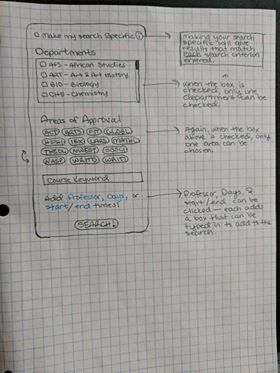 Make my search specific ?
Departments
AFS - African Studies
ART - Art & Art History
BIO - Biology
CHB - Chemistry
Areas of Approval
ACT ARTS FIT GLOBAL
LABS MATHL
THEOL
WRITD WRITI
Course Keyword
Add Professor, Days, or
start/end times!
SEARCH!
making your search
specific will give
result that match
each search criterion
entered.
when the box is
checked, only one
department can be
checked.
Again, when the box
above is checked, only
one area can be
chosen.
Professor, Days, &
start/end can be
clicked — each adds
a box that can be
typed in to add to the
search.